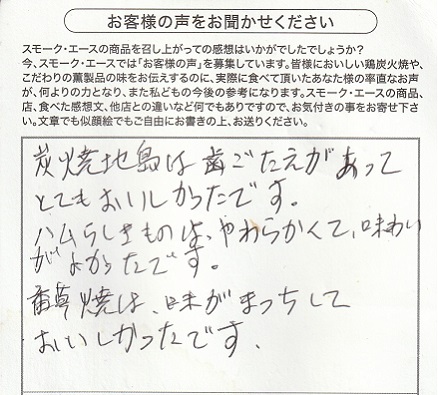 お客様の声をお聞かせください
スモーク・エースの商品を召し上がっての感想はいかがでしたでしょうか?
今、スモーク・エースでは「お客様の声」を募集しています。皆様においしい鶏炭火焼や、
こだわりの薫製品の味をお伝えするのに、実際に食べて頂いたあなた様の率直なお声
が、何よりの力となり、また私どもの今後の参考になります。スモーク・エースの商品、
店、食べた感想文、他店との違いなど何でもありですので、お気付きの事をお寄せ下さ
い。文章でも似顔絵でもご自由にお書きの上、お送りください。
炭焼地鳥は歯ごたえがあって
とてもおいしかったです。
ハムらしきものは、やわらかくて、味わい
がよかったです。
香草焼は、味がまっちして
おいしかったです.